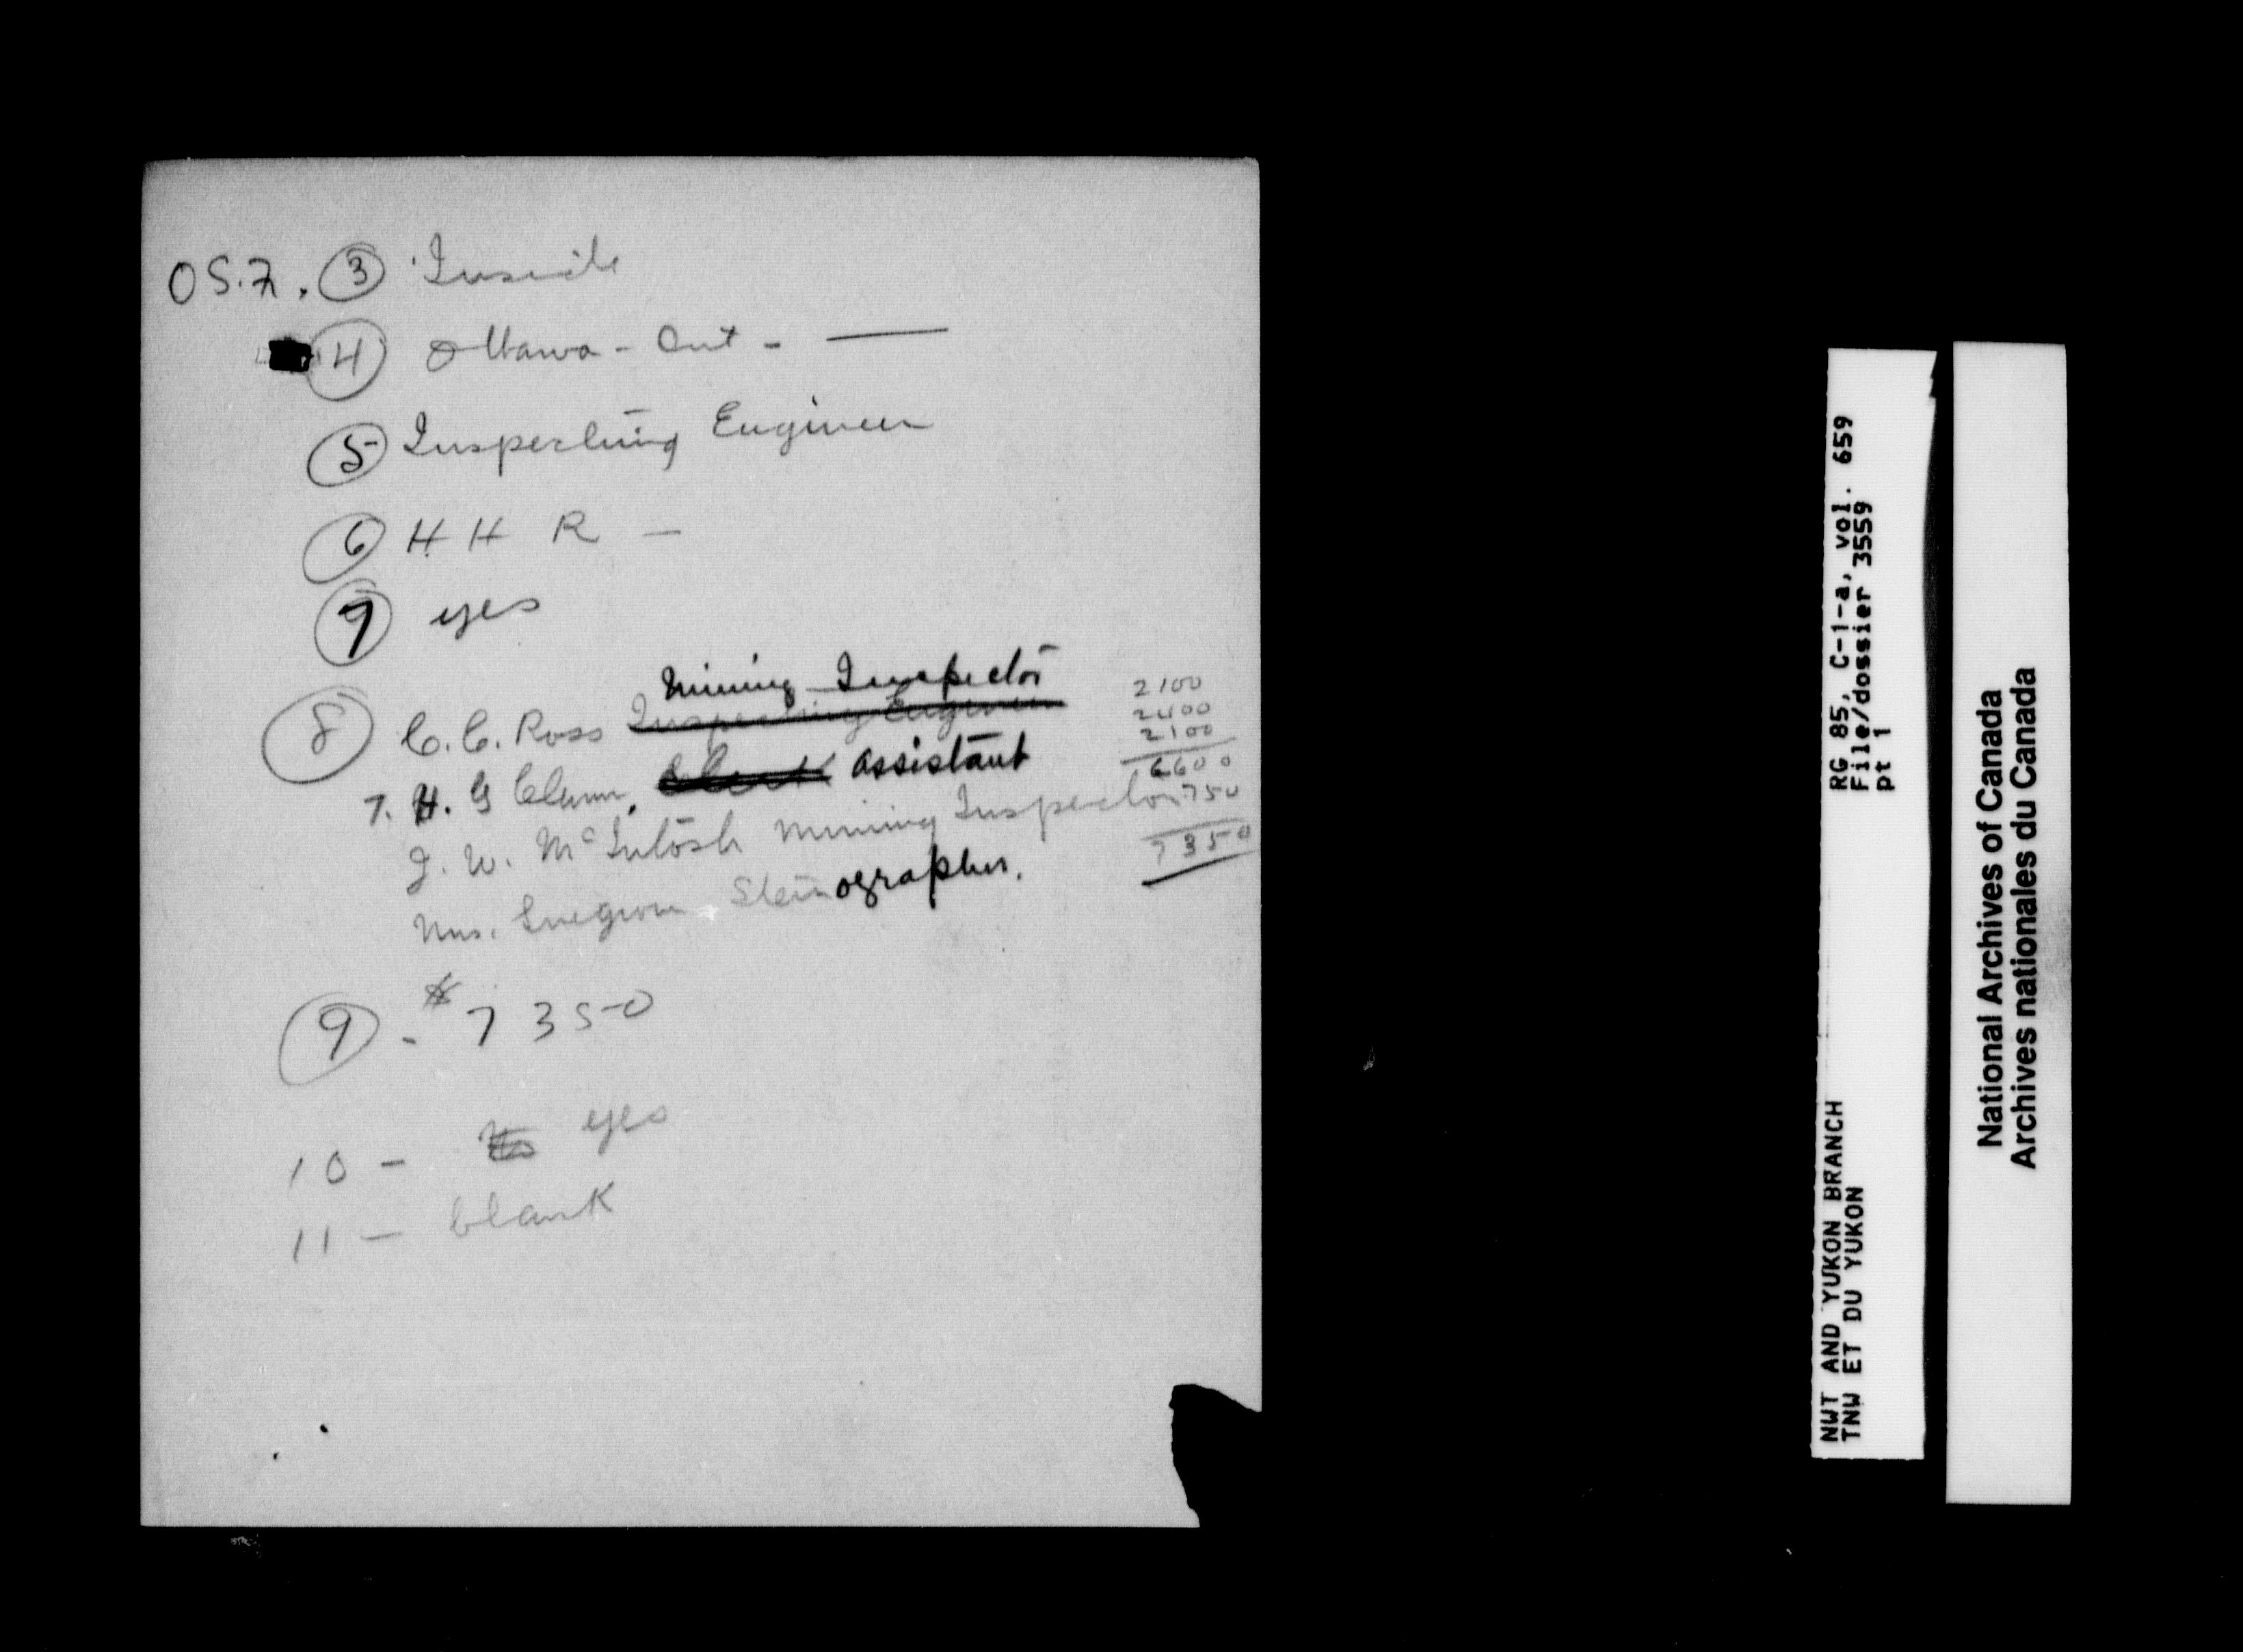 OS.7. ③ Inside
④ Ottawa - Ont -
⑤ Inspecting Engineer
⑥ H H R -
⑦ yes
Mining Inspector 2100
⑧ C. C. Ross Inspecting Engineer 2400
2100
7. H. G Clunn, Clerk assistant 6600
J. W. McIntosh Mining Inspector 750
Mrs. Stenographer. 7350
⑨ - $7350
10 - No yes
11 - blank
RG 85, C-1-a, vol. 659
File/dossier 3559
pt 1
NWT AND YUKON BRANCH
TNW ET DU YUKON
National Archives of Canada
Archives nationales du Canada